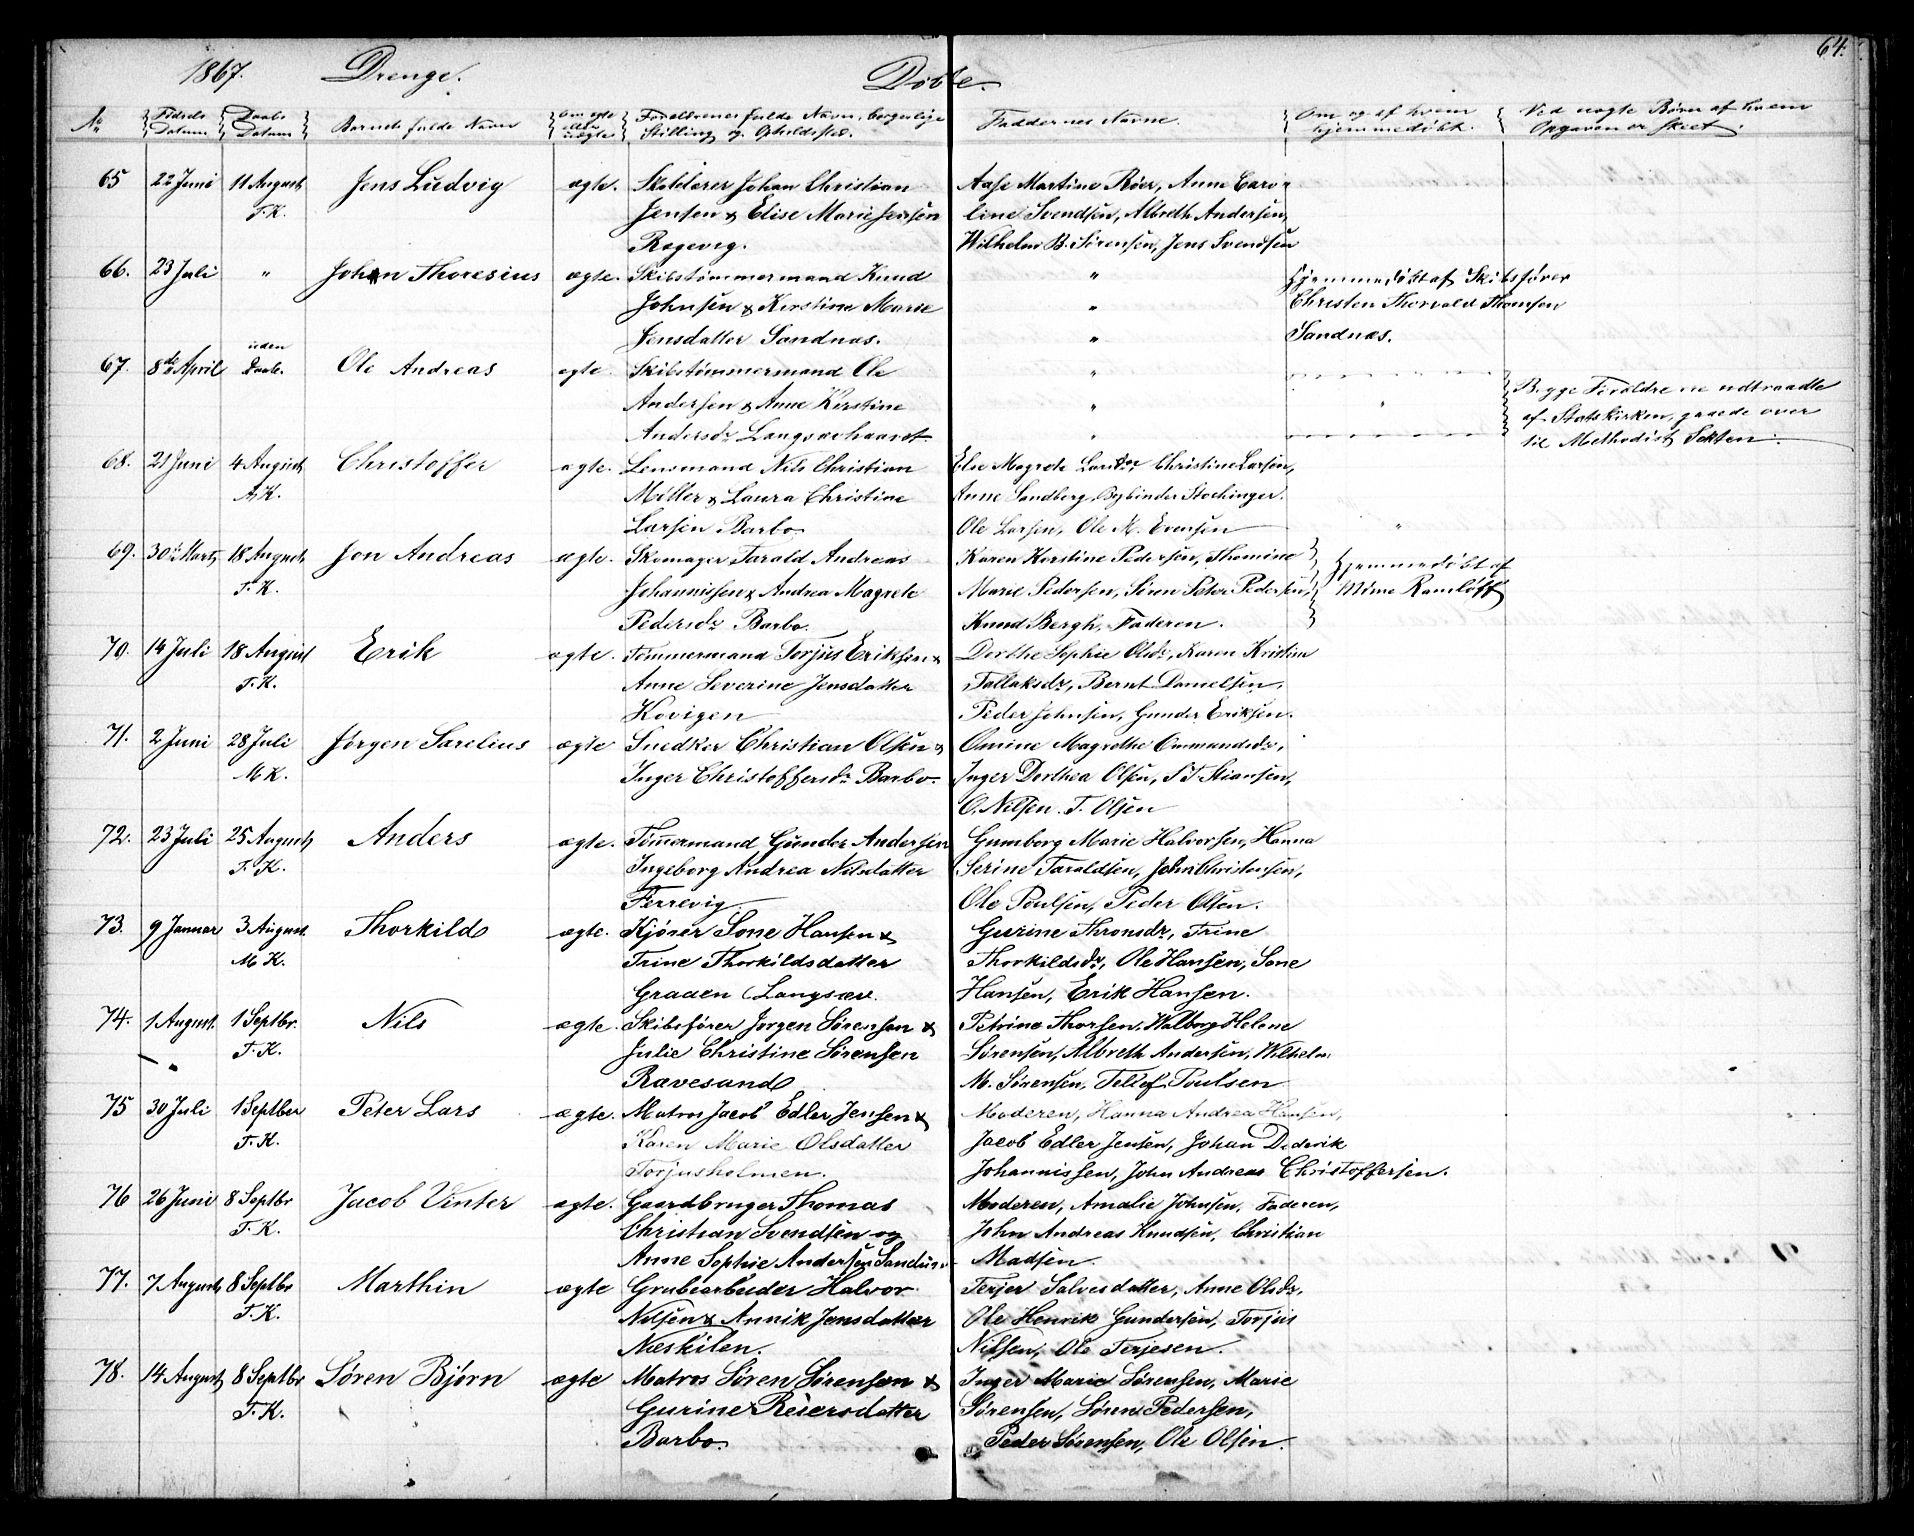 1867. Drenge. Døbte. 64.
No Fødsels Datum Daabs Datum Barnets fulde Navn Om ægte eller uægte Forældrenes fulde Navn, borgerlige Stilling og Opholdssted. Faddernes Navne. Om og af hvem hjemmedøbt. Ved uægte Børn af hvem Opgaven er skeet.
65 22 Juni 11 August Jens Ludvig ægte. Johan Christian Aase Martine Röer, Anne Caro-
T.K. Jensen & Elise Marie Jensen line Svendsen, Albreth Andersen,
Ragevig. Wilhelm B. Sörensen, Jens Svendsen
66. 23 Juli " Johan Thoresius ægte. Skibstømmermand Knud " Hjemmedøbt af Skibsfører
Johnsen & Kirstine Marie " Christen Thorvald Thomsen
Jensdatter Sandnæs. " Sandnæs.
67. 8de April uden Daab. Ole Andreas ægte. Skibstømmermand Ole "
Andersen & Anne Kirstine " " Begge Forældrene udtraadte
Andersdr " af Statskirken, gaaede over
til Methodist Sekten.
68. 21 Juni 4 August Christoffer ægte. Lensmand Nils Christian Else Magrete Christine Larsen,
A.K. Møller & Laura Christine Anne Sandberg, Stochinger.
Larsen Barbo Ole Larsen, Ole M. Evensen "
69. 30 Marts 18 August Jon Andreas ægte. Skomager Tarald Andreas Karen Kerstine Pedersen, Thomine Hjemmedøbt af
T.K. Johannissen & Andrea Magrete Marie Pedersen, Sören Peter Pedersen, Mime Ramløff
Pedersdr Barbo. Knud Bergh, Faderen.
70. 14 Juli 18 August Erik ægte. Tømmermand Torjus Eriksen & Dorthe Sophie Olsdr, Karen Kristine
T.K. Anne Severine Jensdatter Tallaksdr, Bernt Danielsen,
Kovigen Peder Johnsen, Gunder Eriksen.
71. 2 Juni 28 Juli Jørgen Sarelius ægte Snedker Christian Olsen & Omine Magrethe Ommundsdr,
M K. Inger Christoffersdr Barbo. Inger Dorthea Olsen, S T Stiansen,
O. Nilsen. T. Olsen
72. 23 Juli 25 August Anders ægte. Tømmermand Gunder Andersen Gumborg Marie Halvorsen, Hanna
T.K. Ingeborg Andrea Nilsdatter Serine Taraldsen, John Christensen,
Ferrevig Ole Poulsen, Peder Olsen.
73. 9 Januar 3 August Thorkild ægte. Kjører Sone Hansen & Gurine Thronsdr, Trine
M K. Trine Thorkildsdatter Thorkildsdr, Ole Hansen, Sone
Graaen (Langsæv. Hansen, Erik Hansen.
74. 1 August. 1 Septbr. Nils ægte. Skibsfører Jørgen Sörensen & Petrine Thorsen, Walborg Helene
T.K. Julie Christine Sörensen Sørensen, Albreth Andersen, Wilhelm
Rævesand M. Sørensen, Tellef Poulsen
75 30 Juli 1 Septber Peter Lars ægte. Matros Jacob Edler Jensen & Moderen, Hanna Andrea Hansen,
T.K. Karen Marie Olsdatter Jacob Edler Jensen, Johan Dederik
Torjusholmen. Johannissen, John Andreas Christoffersen.
76 26 Juni 8 Septbr Jacob Vinter ægte. Gaardbruger Thomas Moderen, Amalie Johnsen, Faderen,
T.K. Christian Svendsen og John Andreas Knudsen, Christian
Anne Sophie Andersen Madsen.
77. 7 August 8 Septbr Marthin ægte Grubearbeider Halvor Terjer Salvesdatter, Anne Olsdr,
T.K. Nilsen & Annik Jensdatter Ole Henrik Gundersen, Torjus
Næskilen. Nilsen, Ole Terjesen.
78. 14 August 8 Septbr Søren Bjørn ægte Matros Søren Sørensen & Inger Marie Sørensen, Marie
T.K. Gurine Reiersdatter Sørensen, Sønn Pedersen,
Barbo. Peder Sørensen, Ole Olsen.